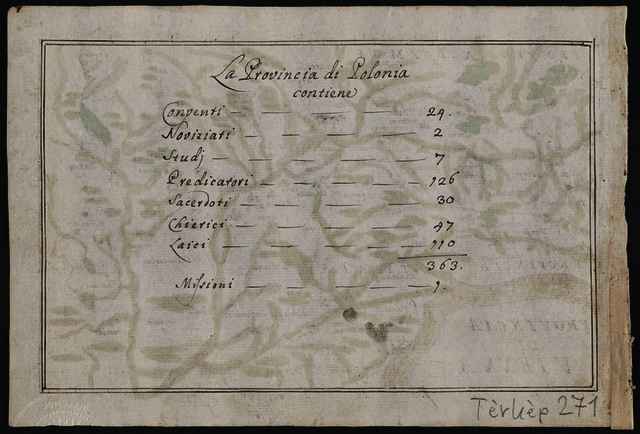 La Provincia di Polonia
contiene
Conventi — — — — 24.
Noviziati — — — — 2
Studj — — — — — 7
Predicatori — — — — 126
Sacerdoti — — — — 30
Chierici — — — — 47
Laici — — — — — 110
363.
Missioni — — — — 1.
Térkép 271